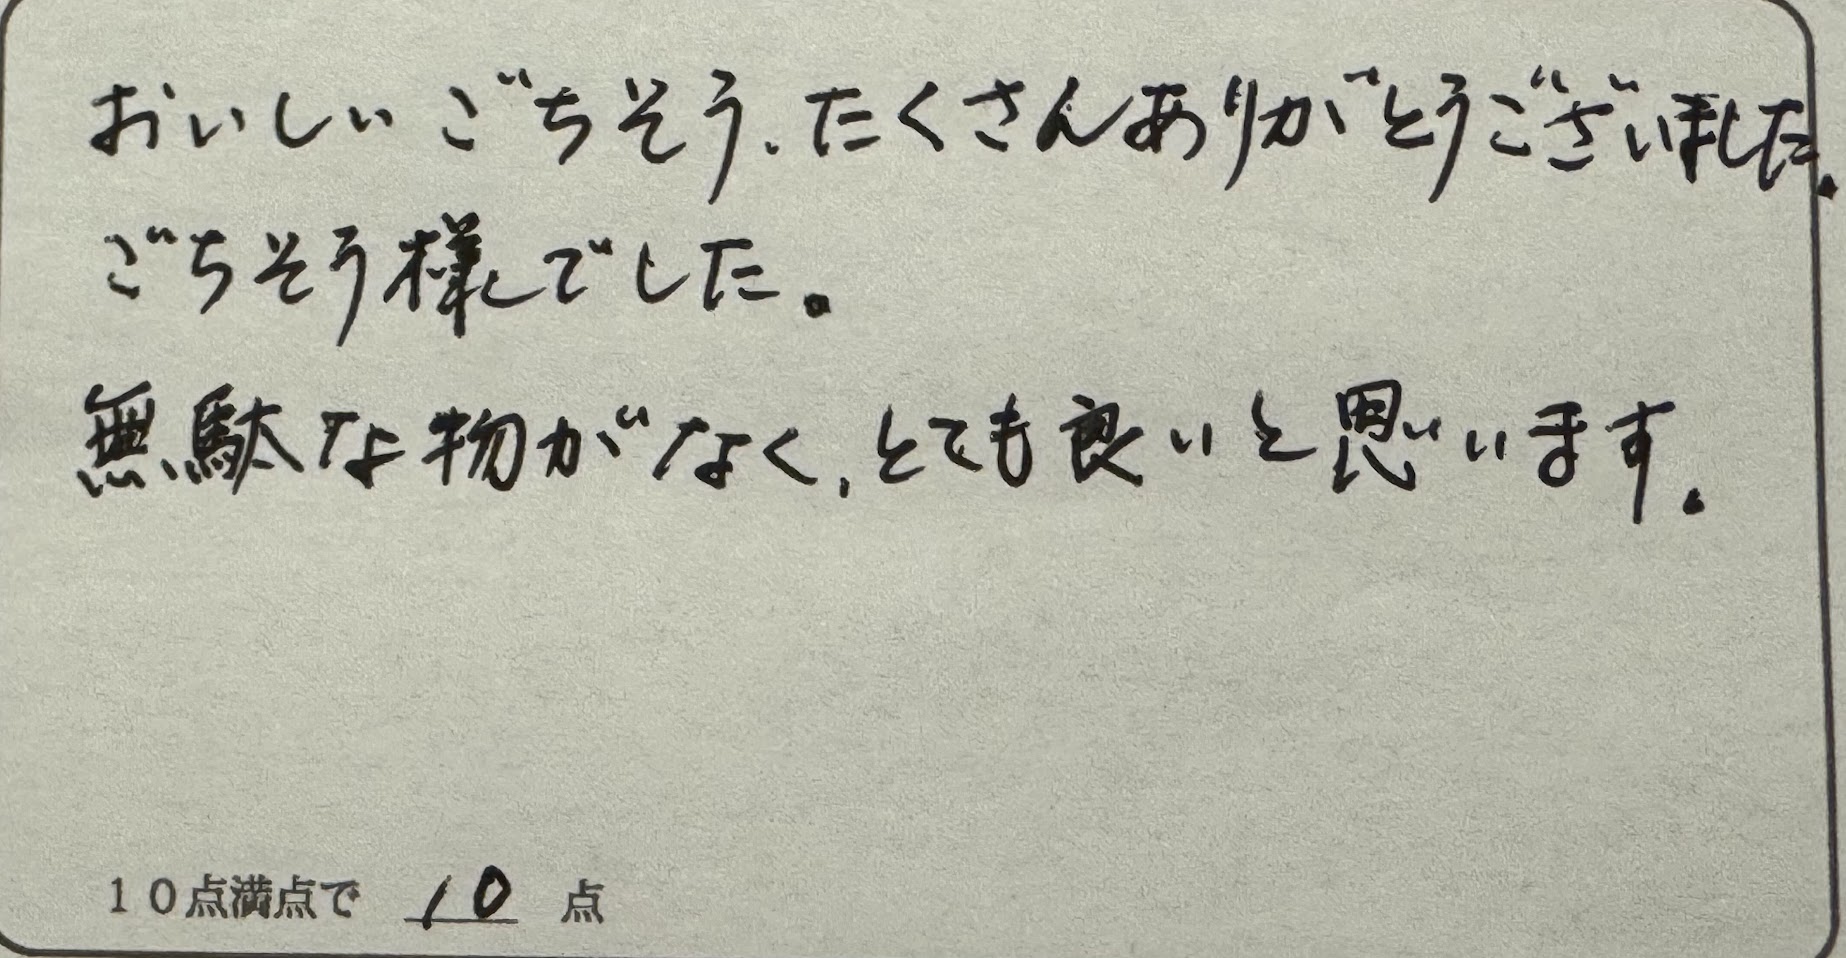 おいしいごちそう、たくさんありがとうございました。
ごちそう様でした。
無駄な物がなく、とても良いと思います。
10点満点で 10 点